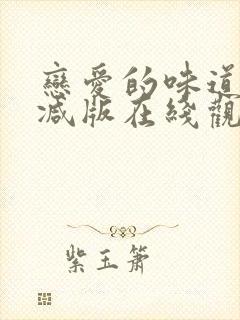 戀愛的味道
減版在綫觀
紫玉簫